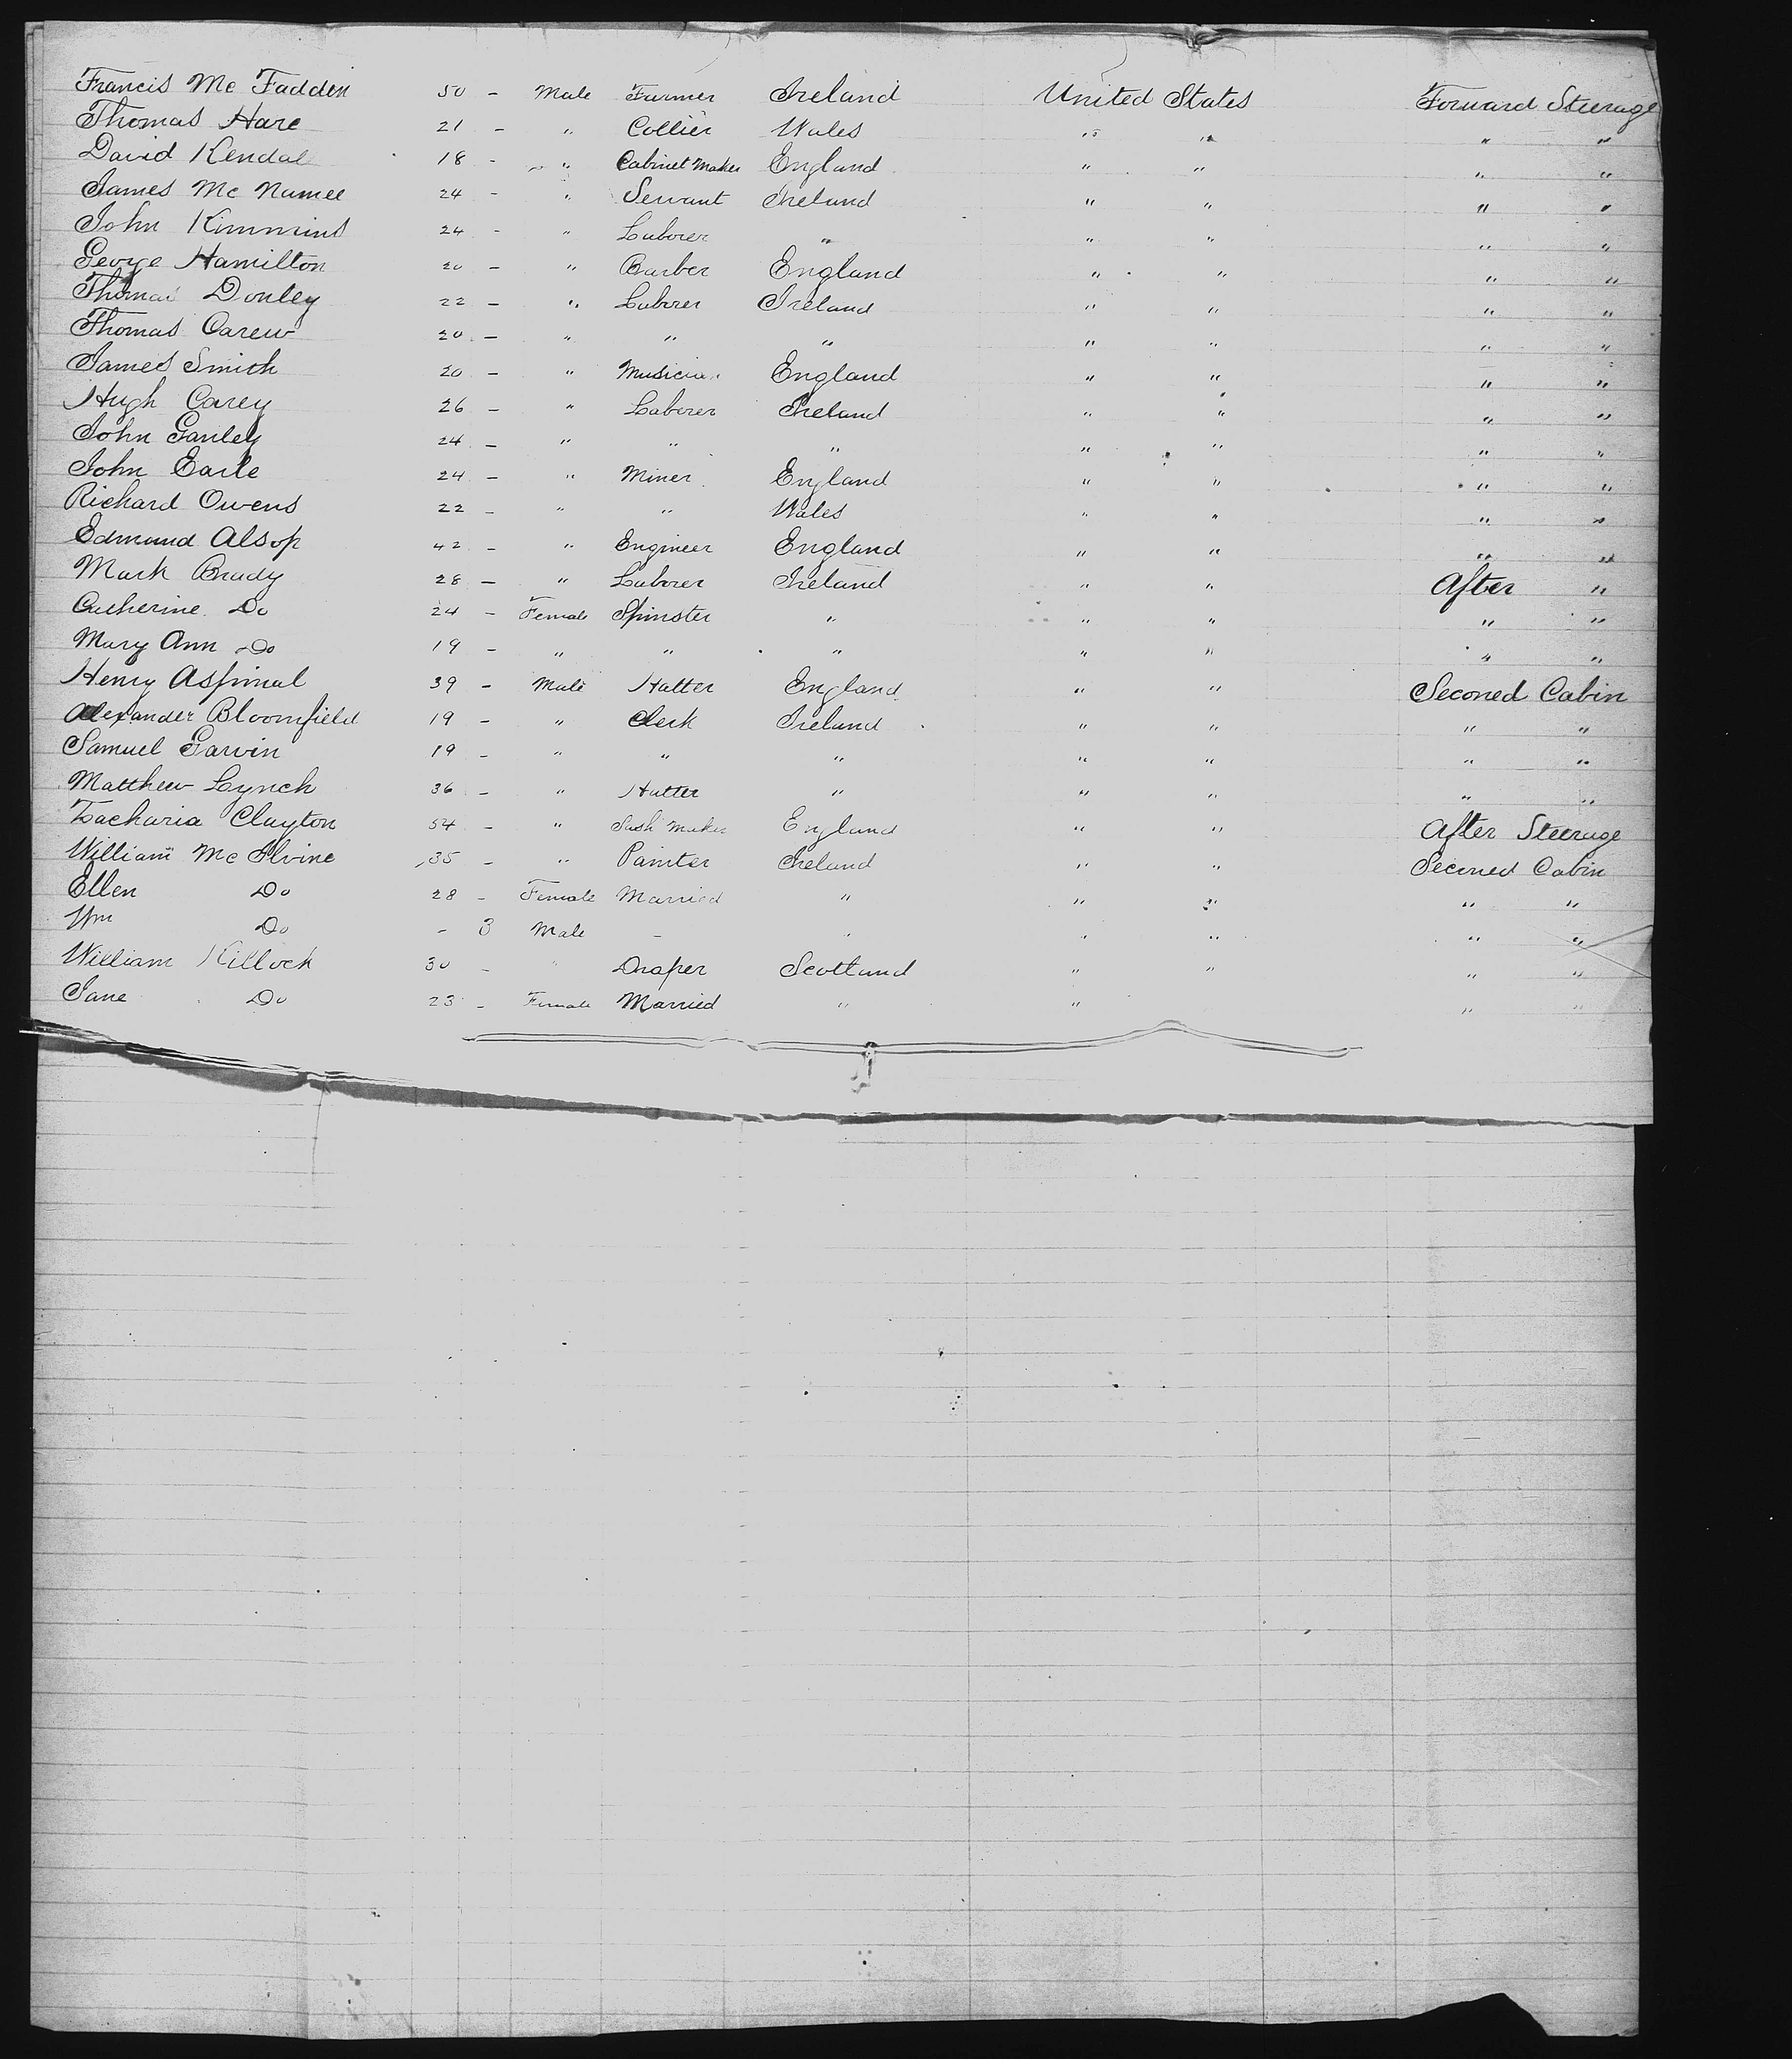 Francis Mc Fadden 50 - Male Farmer Ireland United States Forward Steerage
Thomas Hare 21 - " Collier Wales " " " "
David Kendal 18 - " Cabinet Maker England " " " "
James Mc Namee 24 - " Servant Ireland " " " "
John Kimmins 24 - " Laborer " " " " "
George Hamilton 20 - " Barber England " " " "
Thomas Donley 22 - " Laborer Ireland " " " "
Thomas Carew 20 - " " " " " " "
James Smith 20 - " Musician England " " " "
Hugh Carey 26 - " Laborer Ireland " " " "
John Ganley 24 - " " " " " " "
John Earle 24 - " Miner England " " " "
Richard Owens 22 - " " Wales " " " "
Edmund Alsop 42 - " Engineer England " " " "
Mark Brady 28 - " Laborer Ireland " " After "
Catherine Do 24 - Female Spinster " " " " "
Mary Ann Do 19 - " " " " " " "
Henry Aspinal 39 - Male Hatter England " " Seconed Cabin
Alexander Bloomfield 19 - " Clerk Ireland " " " "
Samuel Garvin 19 - " " " " " " "
Matthew Lynch 36 - " Hatter " " " " "
Zacharia Clayton 54 - " Sash Maker England " " After Steerage
William Mc Ilvine 35 - " Painter Ireland " " Seconed Cabin
Ellen Do 28 - Female Married " " " " "
Wm Do - 3 Male - " " " " "
William Killock 30 - " Draper Scotland " " " "
Jane Do 23 - Female Married " " " "